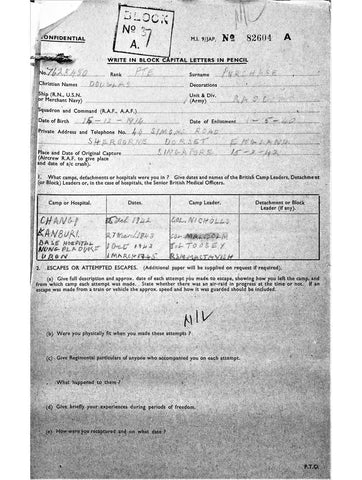 NIL
BLOCK
No 37
A
CONFIDENTIAL
M.I. 9/JAP. No 82604 A
WRITE IN BLOCK CAPITAL LETTERS IN PENCIL
No. 7628450 Rank PTE Surname PURCHASE
Christian Names DOUGLAS Decorations
Ship (R.N., U.S.N. or Merchant Navy) Unit & Div. (Army) R.A.O.C.
Squadron and Command (R.A.F., A.A.F.)
Date of Birth 15-12-1914 Date of Enlistment 1-5-40
Private Address and Telephone No. 40 SIMONS ROAD
SHERBORNE DORSET ENGLAND
Place and Date of Original Capture SINGAPORE 15-2-42
(Aircrew R.A.F. to give place
and date of a/c crash).
1. What camps, detachments or hospitals were you in? Give dates and names of the British Camp Leaders, Detachment
(or Block) Leaders or, in the case of hospitals, the Senior British Medical Officers.
Camp or Hospital. Dates. Camp Leader. Detachment or Block Leader (if any).
CHANGI 1942 COL. NICHOLLS
KANBURI 1943 MALCOLM
BASE HOSPITAL
1943 TOOSEY
UBON 1 MARCH 1945
2. ESCAPES OR ATTEMPTED ESCAPES. (Additional paper will be supplied on request if required).
(a) Give full description and approx. date of each attempt you made to escape, showing how you left the camp, and
from which camp each attempt was made. State whether there was an air-raid in progress at the time or not. If an
escape was made from a train or vehicle the approx. speed and how it was guarded should be included.
NIL
(b) Were you physically fit when you made these attempts?
(c) Give Regimental particulars of anyone who accompanied you on each attempt.
What happened to them?
(d) Give briefly your experiences during periods of freedom.
(e) How were you recaptured and on what date?
P.T.O.